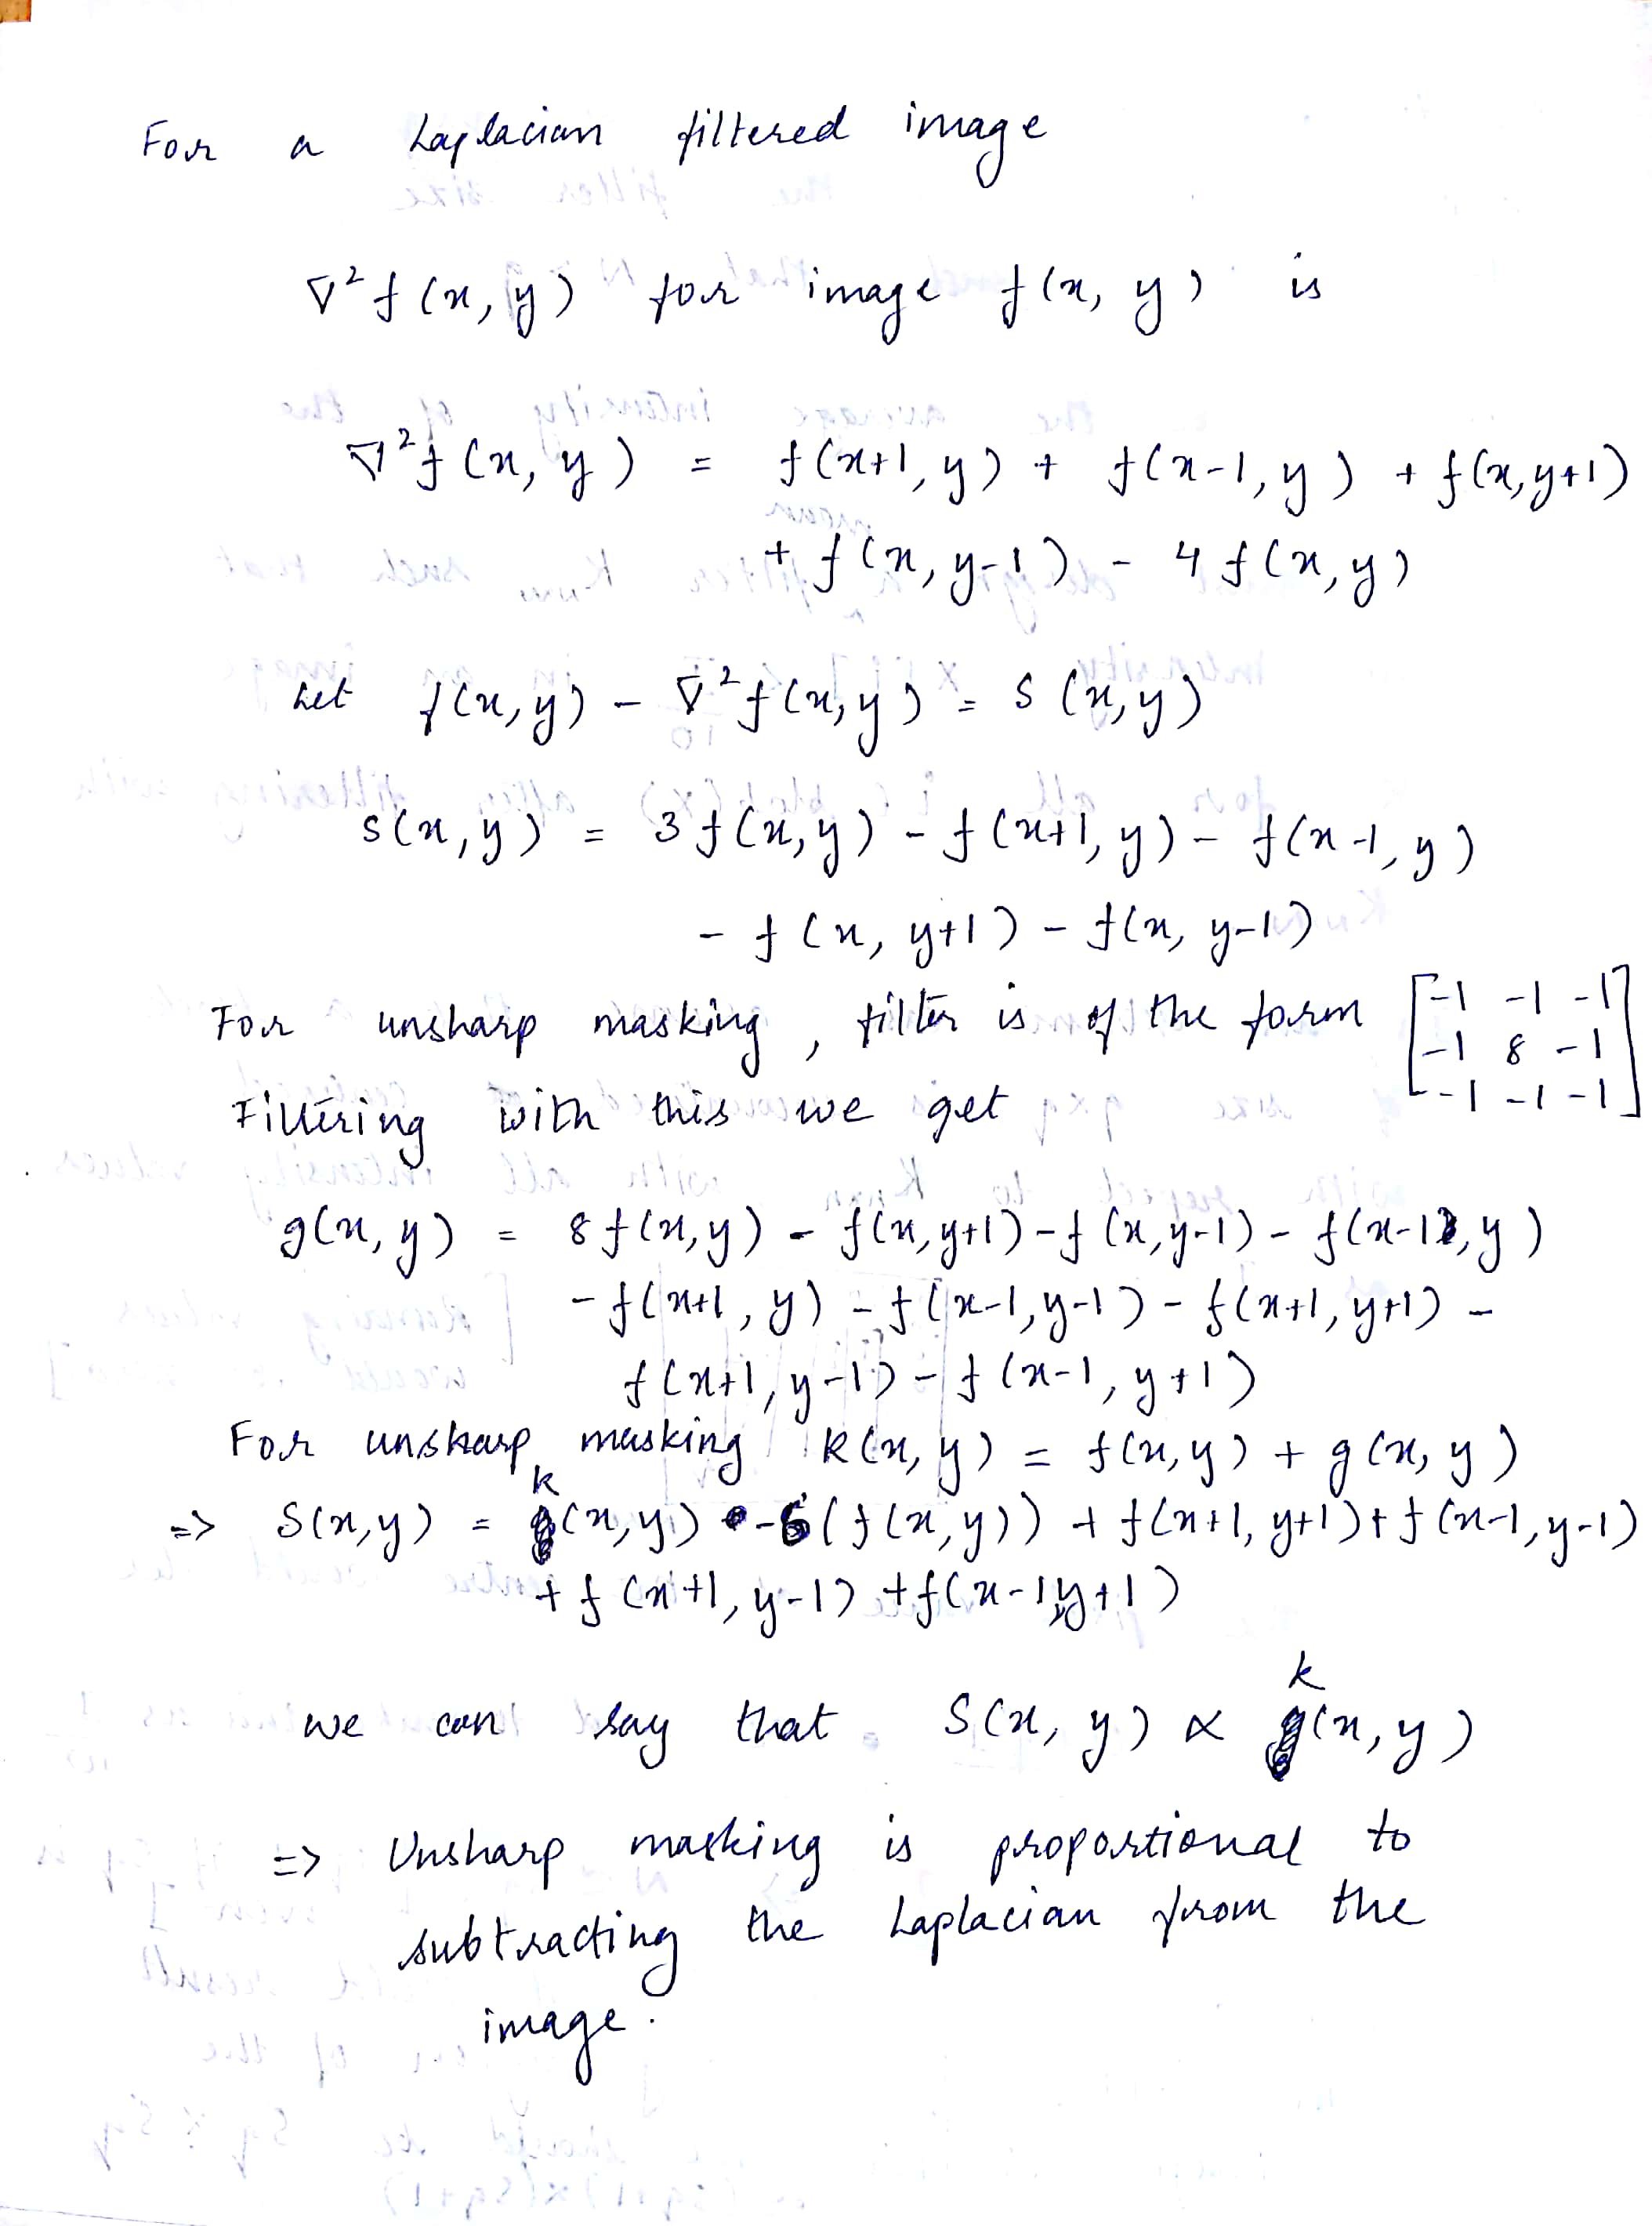 For a Laplacian filtered image
∇²f(x,y) for image f(x,y) is
∇²f(x,y) = f(x+1,y) + f(x-1,y) + f(x,y+1)
+ f(x,y-1) - 4f(x,y)
Let f(x,y) - ∇²f(x,y) = s(x,y)
s(x,y) = 3f(x,y) - f(x+1,y) - f(x-1,y)
- f(x,y+1) - f(x,y-1)
For unsharp masking, filter is of the form [-1 -1 -1
-1 8 -1
-1 -1 -1]
Filtering with this we get
g(x,y) = 8f(x,y) - f(x,y+1) - f(x,y-1) - f(x-1,y)
- f(x+1,y) - f(x-1,y-1) - f(x+1,y+1) -
f(x+1,y-1) - f(x-1,y+1)
For unsharp masking k(x,y) = f(x,y) + g(x,y)
=> S(x,y) = k(x,y) -6(f(x,y)) + f(x+1,y+1) + f(x-1,y-1)
+ f(x+1,y-1) + f(x-1,y+1)
we can say that S(x,y) ∝ k(x,y)
=> Unsharp masking is proportional to
subtracting the Laplacian from the
image.